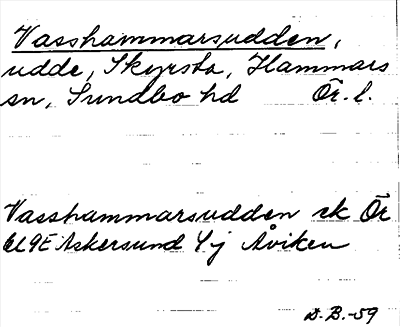 Vasshammarsudden,
udde, Skyrsta, Hammars
sn, Sundbo hd Ör. l.
Vasshammarsudden ek Ör
9E Askersund Y j Åviken
D. B. -59